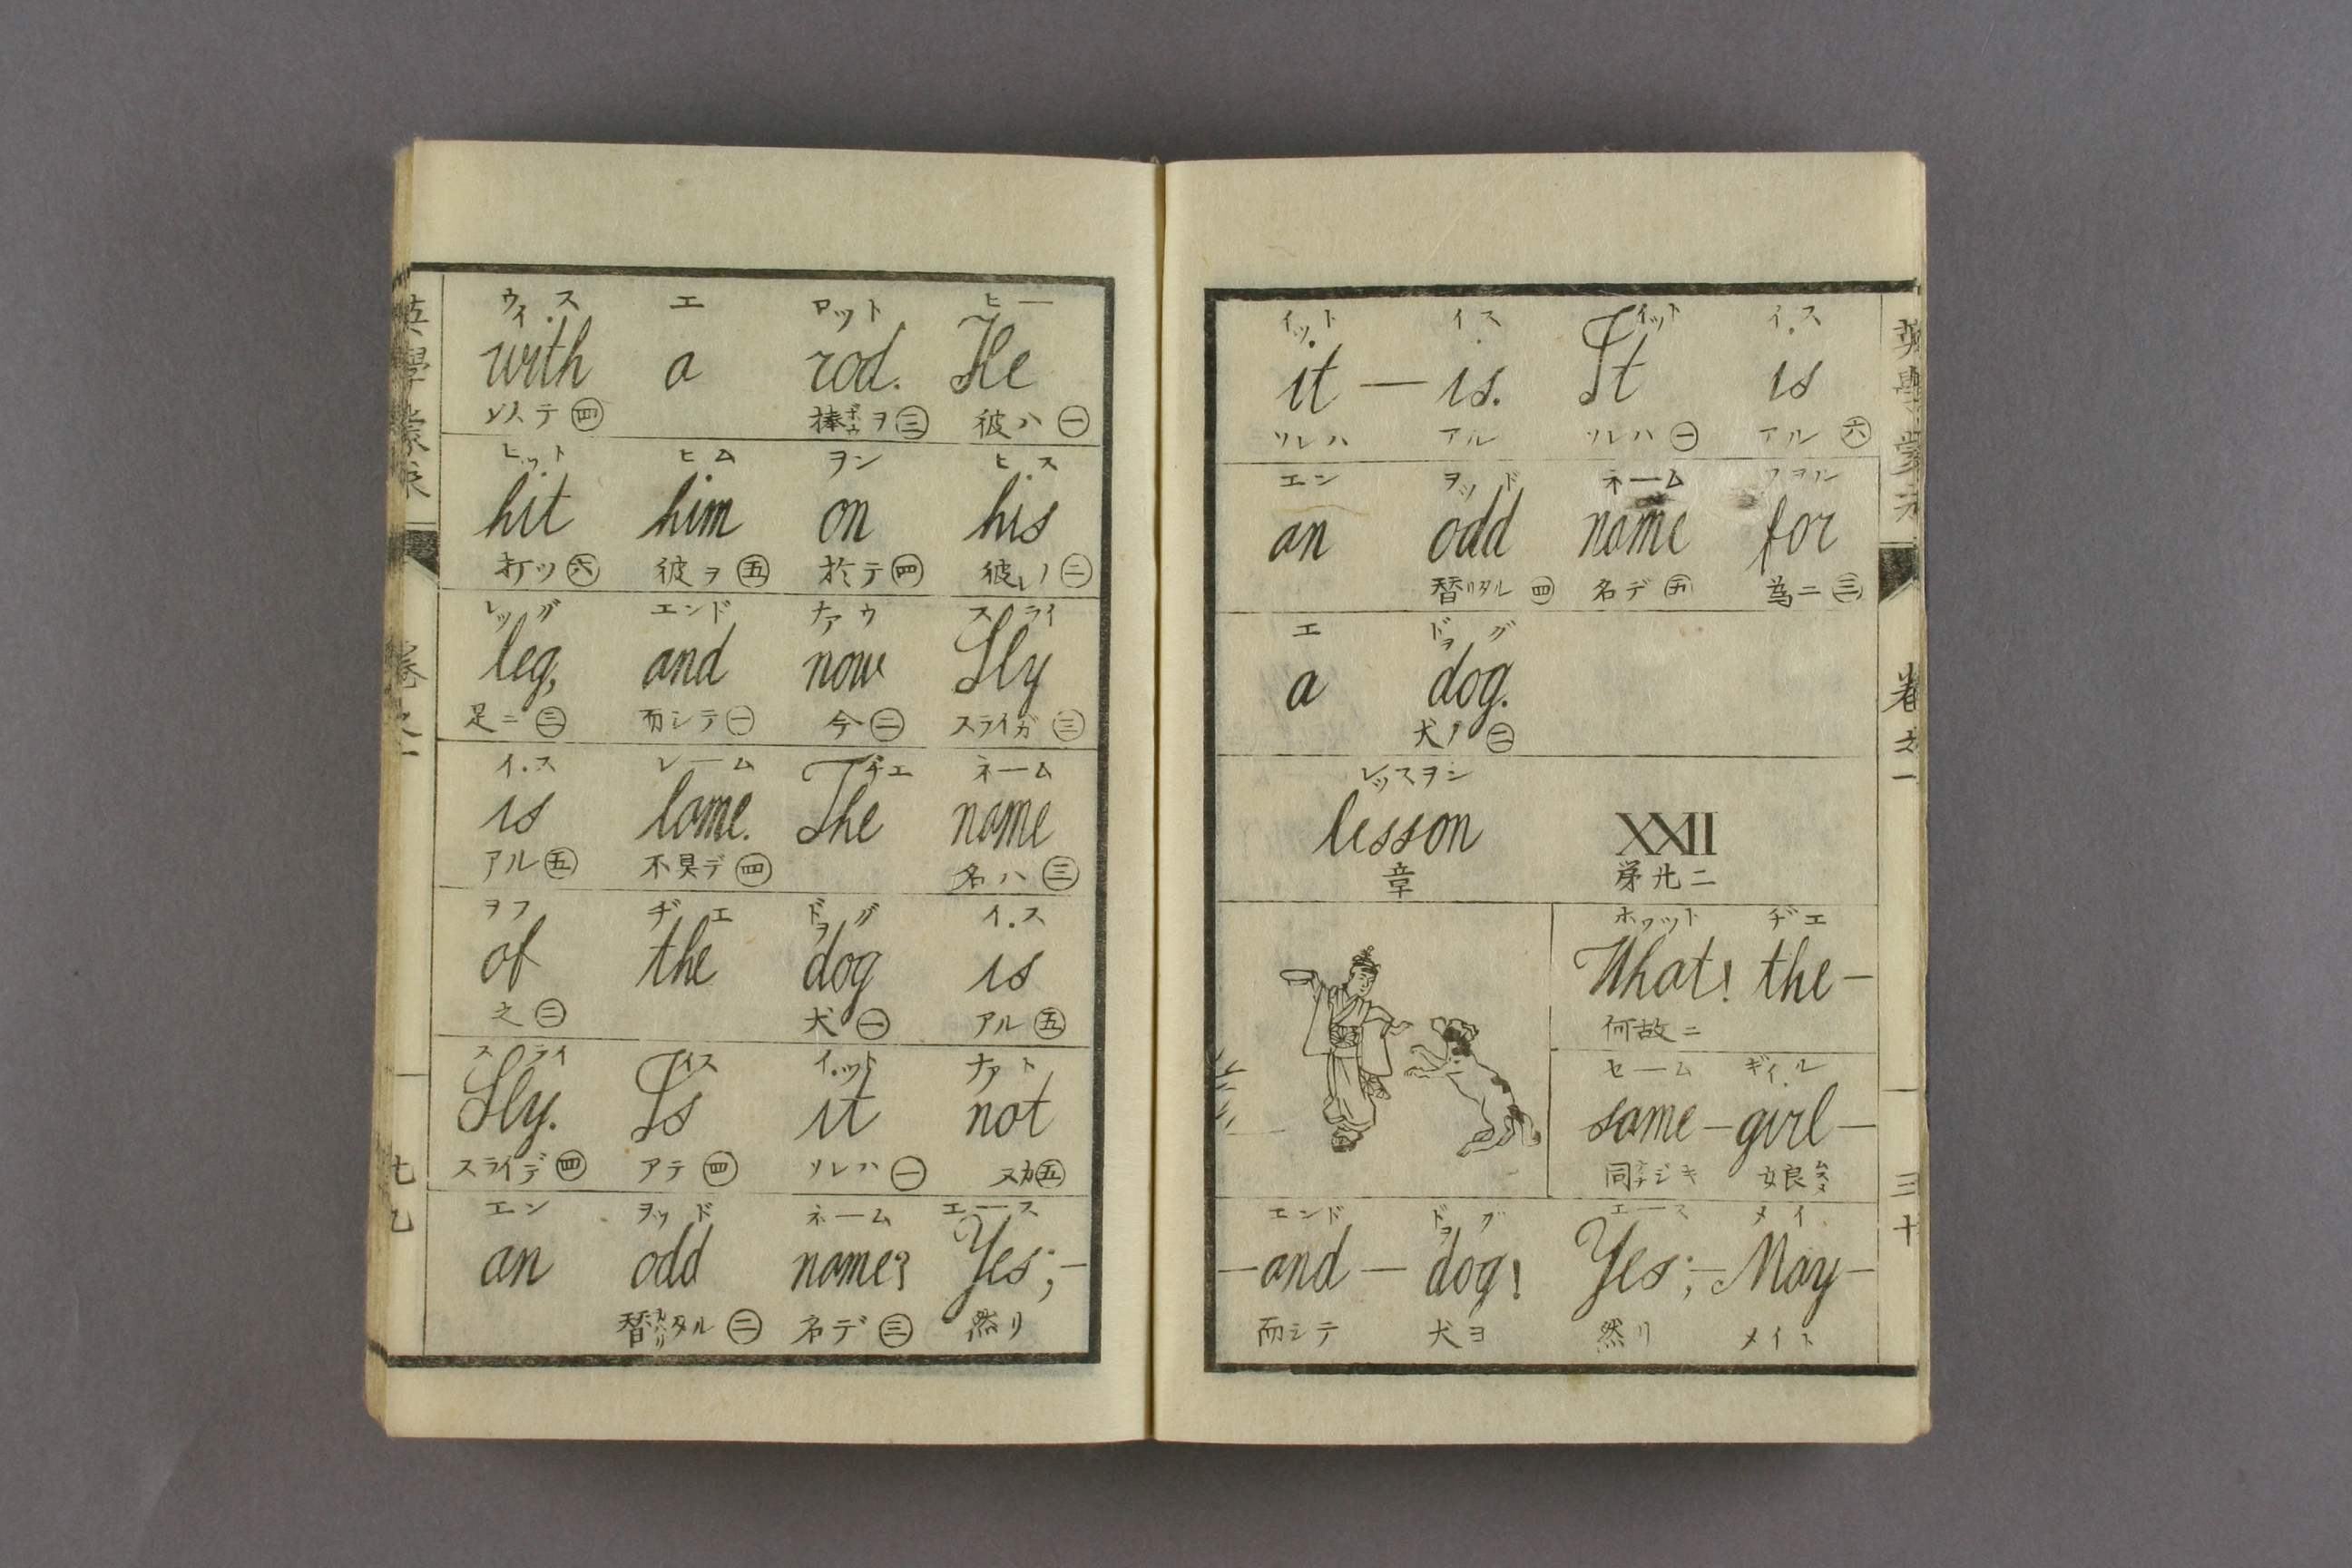 ウィス エ ロット ヒー
with a rod. He
以テ㊃ 棒ボウヲ㊂ 彼ハ㊀
ヒット ヒム ヲン ヒス
hit him on his
打ツ㊅ 彼ヲ㊄ 於テ㊃ 彼レノ㊁
レッグ エンド ナアウ スライ
leg, and now Sly
足ニ㊂ 而シテ㊀ 今㊁ スライガ㊂
イス レーム ヂエ ネーム
is lame. The name
アル㊄ 不具デ㊃ 名ハ㊂
ヲフ ヂエ ドヲグ イス
of the dog is
之㊁ 犬㊀ アル㊄
スライ イス イット ナアト
Sly. Is it not
スライデ㊃ アテ㊃ ソレハ㊀ ヌカ㊄
エン ヲッド ネーム エース
an odd name? Yes;—
替カハリタル㊁ 名デ㊂ 然リ
英學 卷之一
イット イス イット イス
it — is. It is
ソレハ アル ソレハ㊀ アル㊅
エン ヲッド ネーム フヲル
an odd name for
替リタル㊃ 名デ㊄ 為ニ㊂
エ ドヲグ
a dog.
犬ノ㊁
レッスヲン
lesson XXII
章 第廿二
ホワット ヂエ
What! the—
何故ニ
セーム ギィル
same—girl—
同ナジキ 娘ムスメ
エンド ドヲグ エース メイ
—and—dog! Yes;—May—
而シテ 犬ヨ 然リ メイト
卷之一
三十